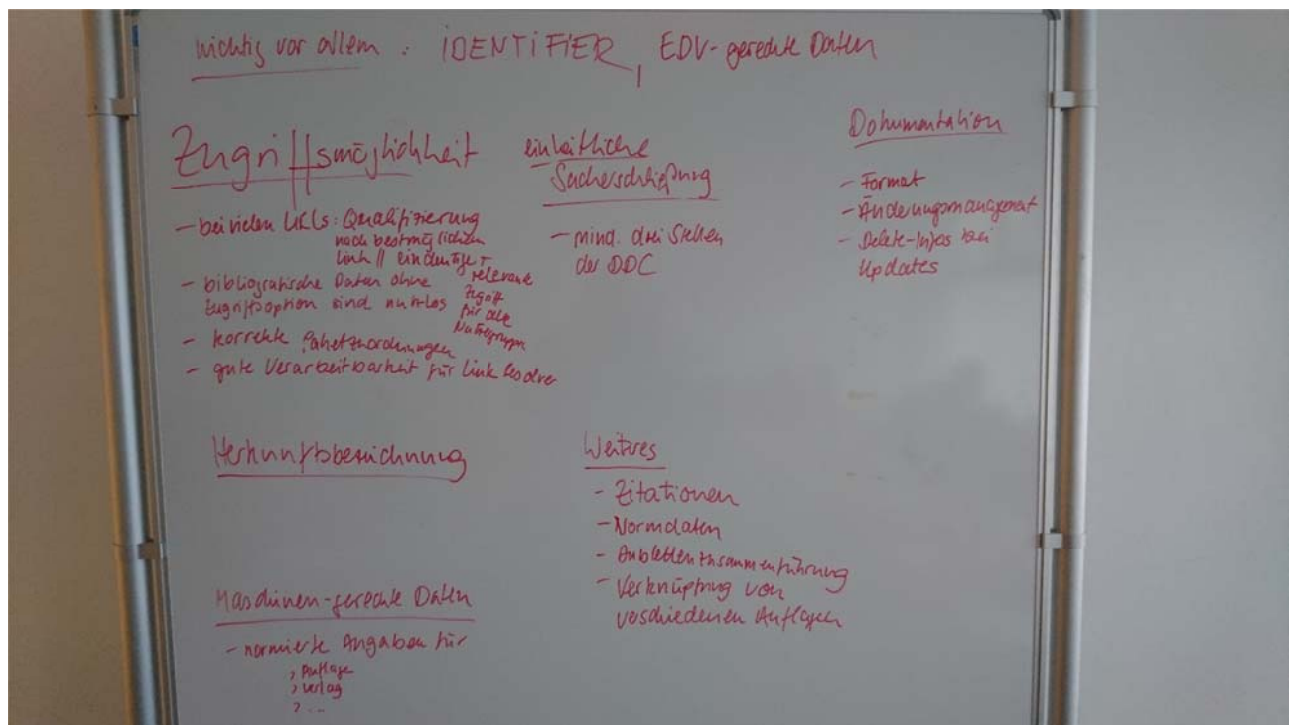 wichtig vor allem : IDENTIFIER, EDV-gerechte Daten
Zugriffsmöglichkeit
- bei vielen URLs: Qualifizierung
nach bestmöglichem
Link // eindeutiger
relevante
Zugriff
für alle
Nutzergruppen
- bibliografische Daten ohne
Zugriffsoption sind nutzlos
- korrekte Paketzuordnungen
- gute Verarbeitbarkeit für Link Resolver
einheitliche
Sacherschließung
- mind. drei Stellen
der DDC
Dokumentation
- Format
- Änderungsmanagement
- Delete-Infos bei
Updates
Herkunftsbezeichnung
Weiteres
- Zitationen
- Normdaten
- Dublettenzusammenführung
- Verknüpfung von
verschiedenen Auflagen
Maschinen-gerechte Daten
- normierte Angaben für
> Auflage
> Verlag
> ...